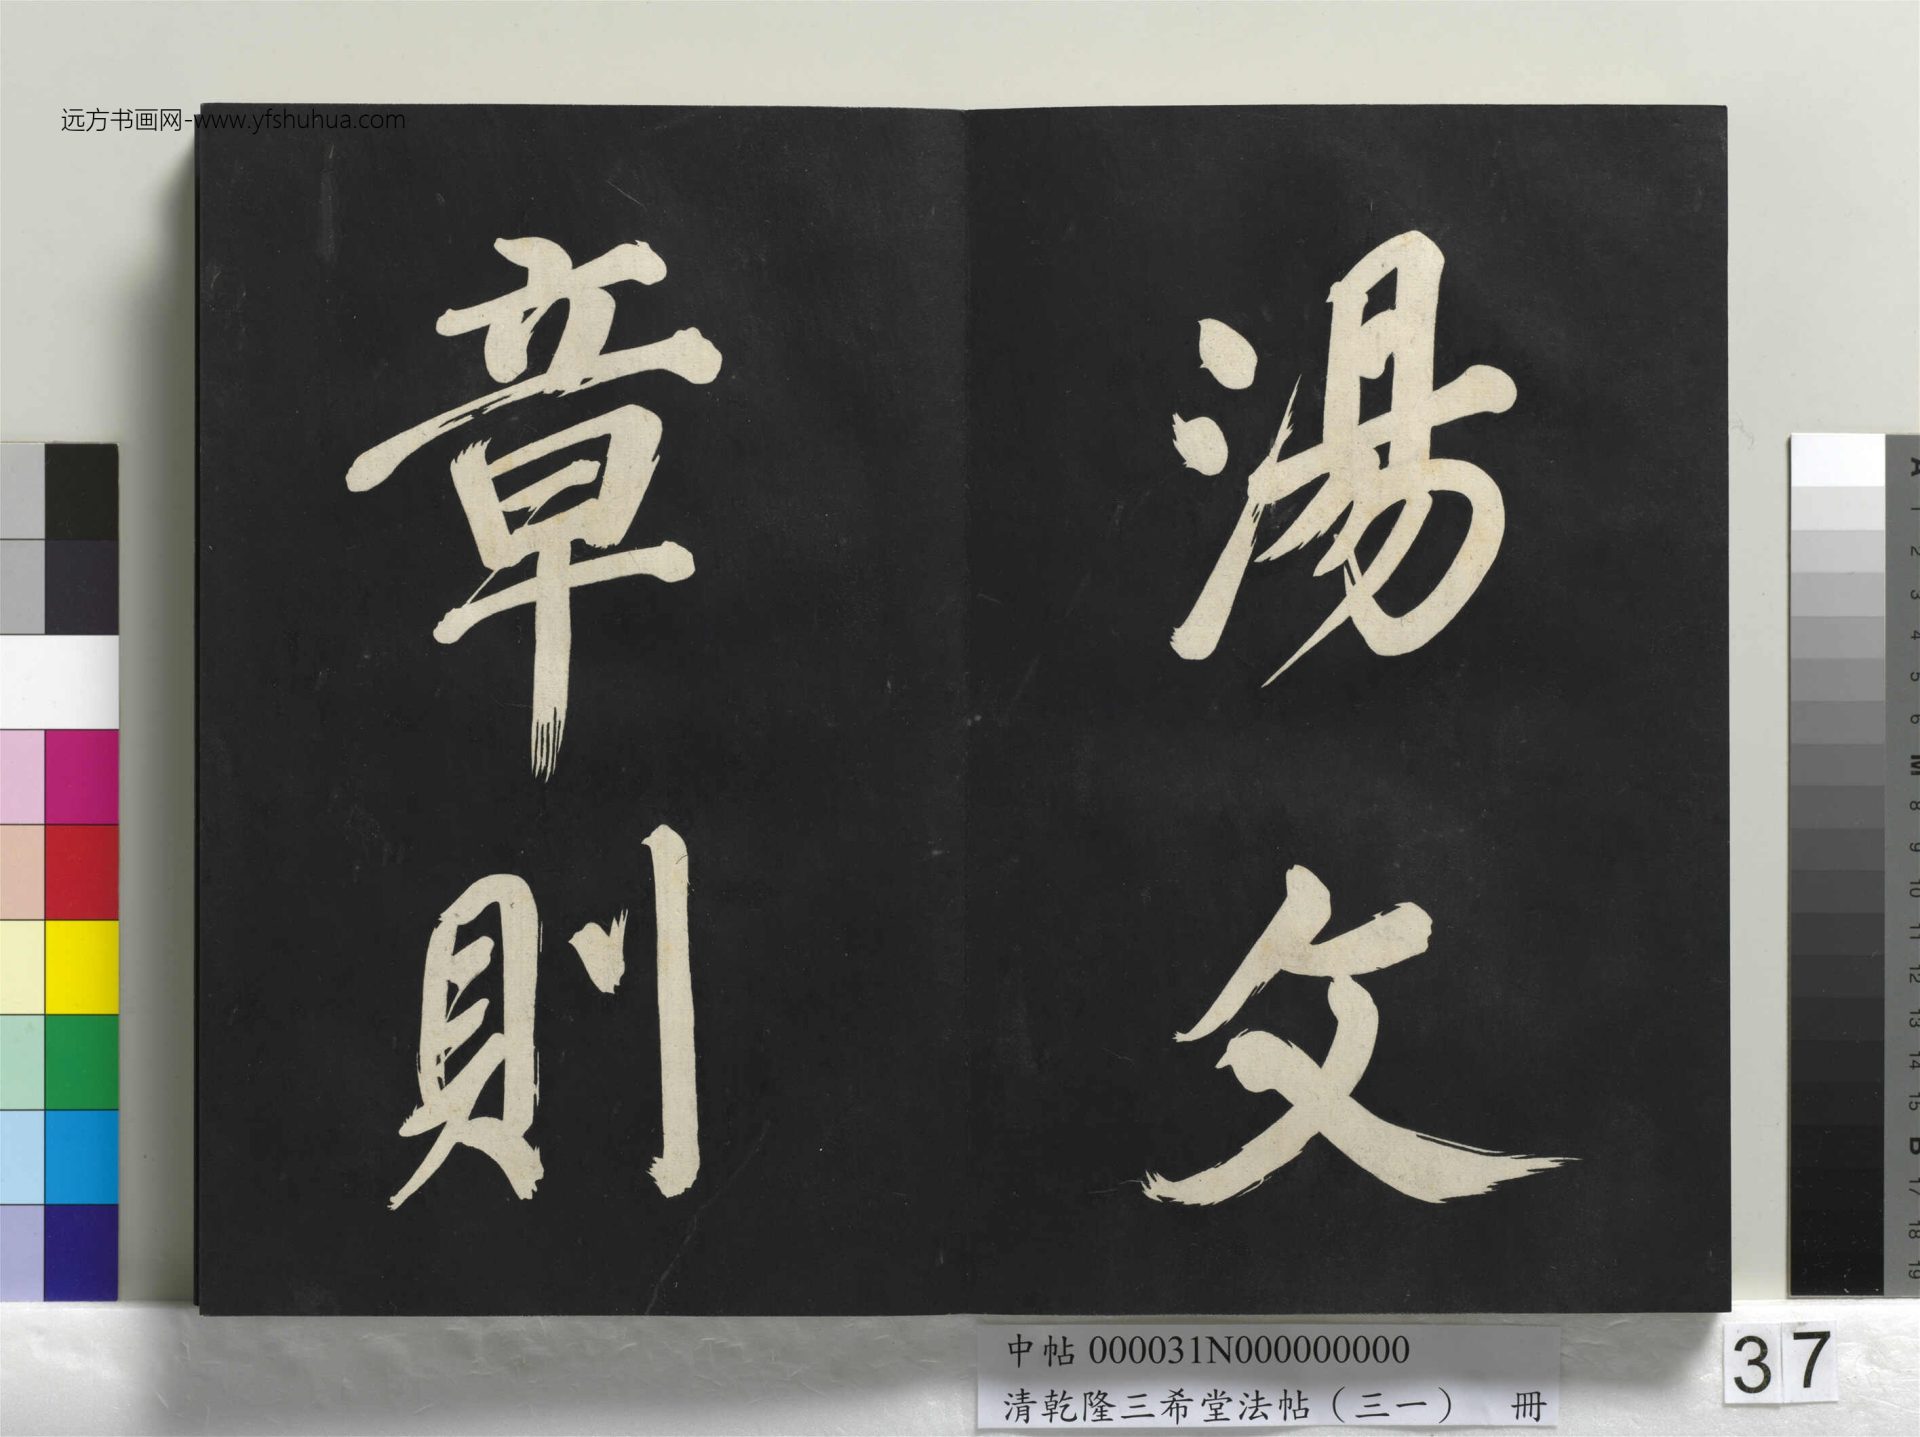 远方书画网-www.yfshuhua.com
湯文
章則
中帖 000031N000000000
清乾隆三希堂法帖（三一） 冊
37
A 1 2 3 4 5 6 M 8 9 10 11 12 13 14 15 B 17 18 19